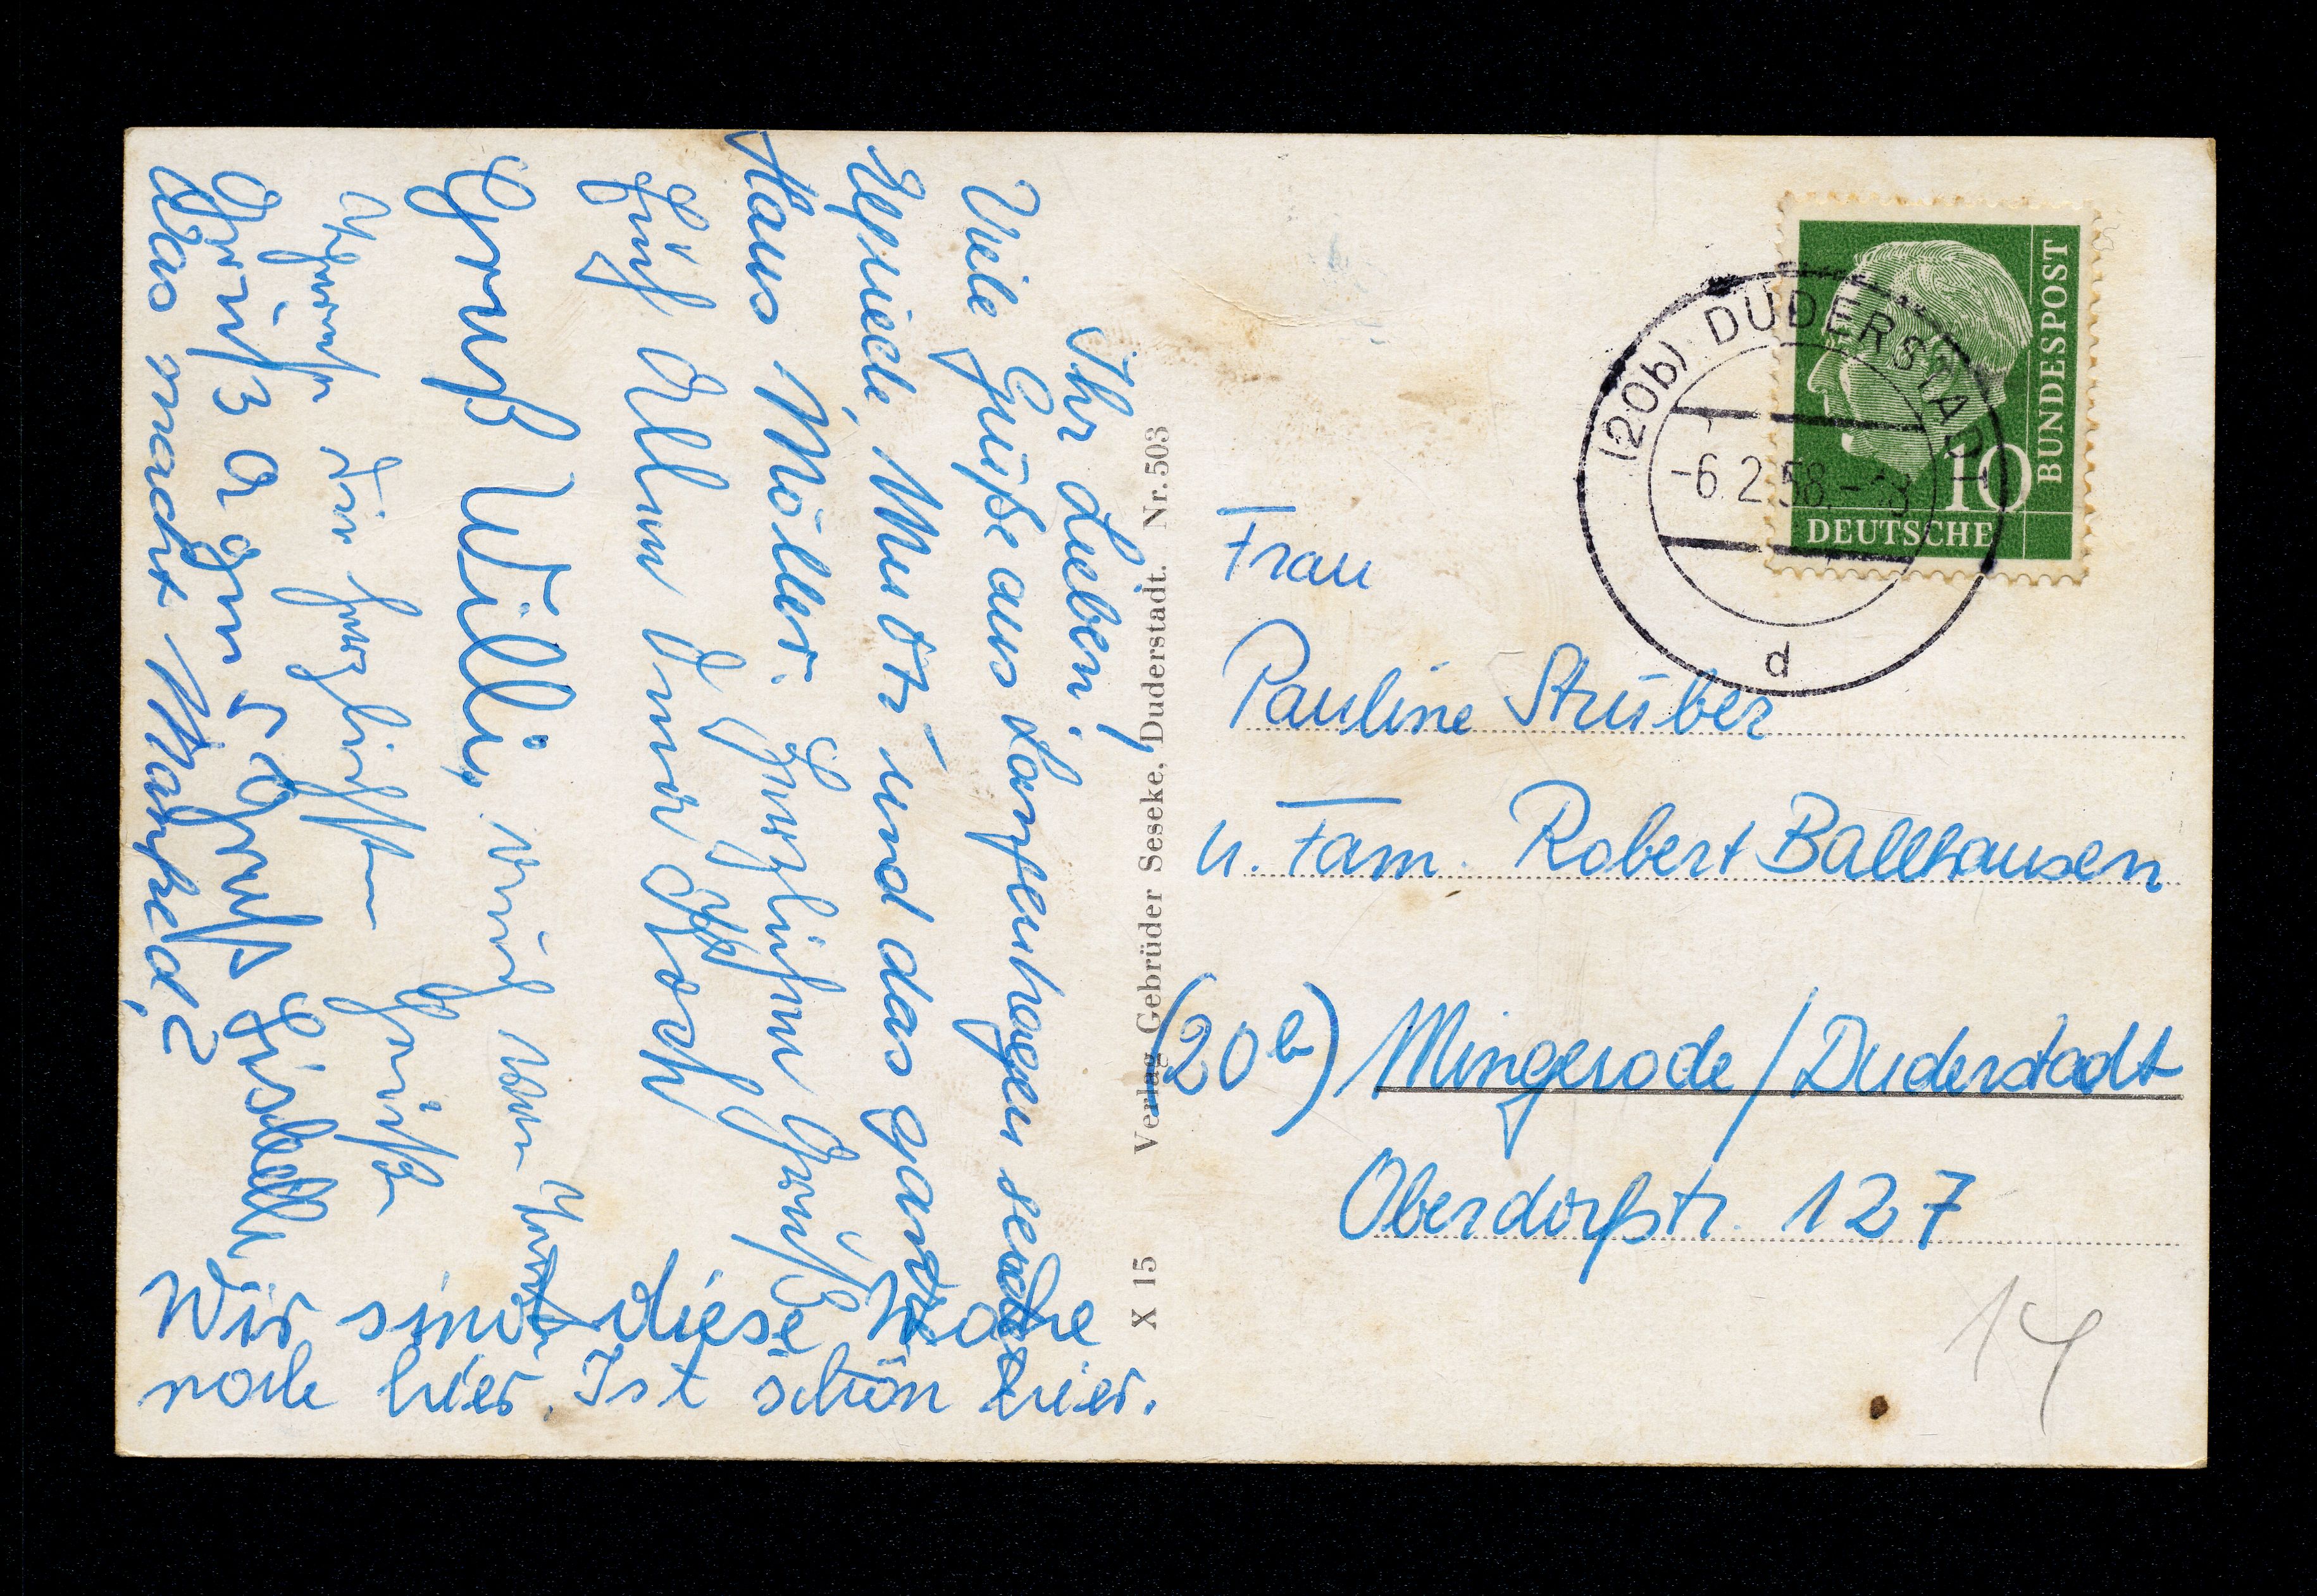 Ihr Lieben!
Viele Grüße aus Lanfenhagen
Elfriede, Mutti und das ganze
Haus Möller. Herzlichen Grüße
Euch Allen
Gruß Willi, auch von
herzlichsten Grüße
Gruß Lisbeth
Was macht Manfred?
Wir sind diese Woche
noch hier. Ist schön hier.
X 15 Verlag Gebrüder Seseke, Duderstadt. Nr. 503
BUNDESPOST
10
DEUTSCHE
(20b) DUDERSTADT
-6.2.58.-
d
Frau
Pauline Strüber
u. Fam. Robert Ballhausen
(20b) Mingerode / Duderstadt
Oberdorfstr. 127
14